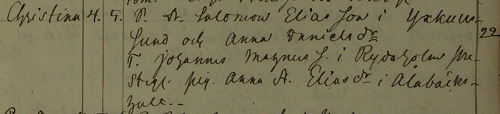 Christina 4. 5. P. A. Salomon Elias Son i Yxkull-
sund och Anna Danielsdr
T. Johannes Magnus S. i Rydaholm
pig. Anna A. Eliasdr i Alabäcks-
hult.
22